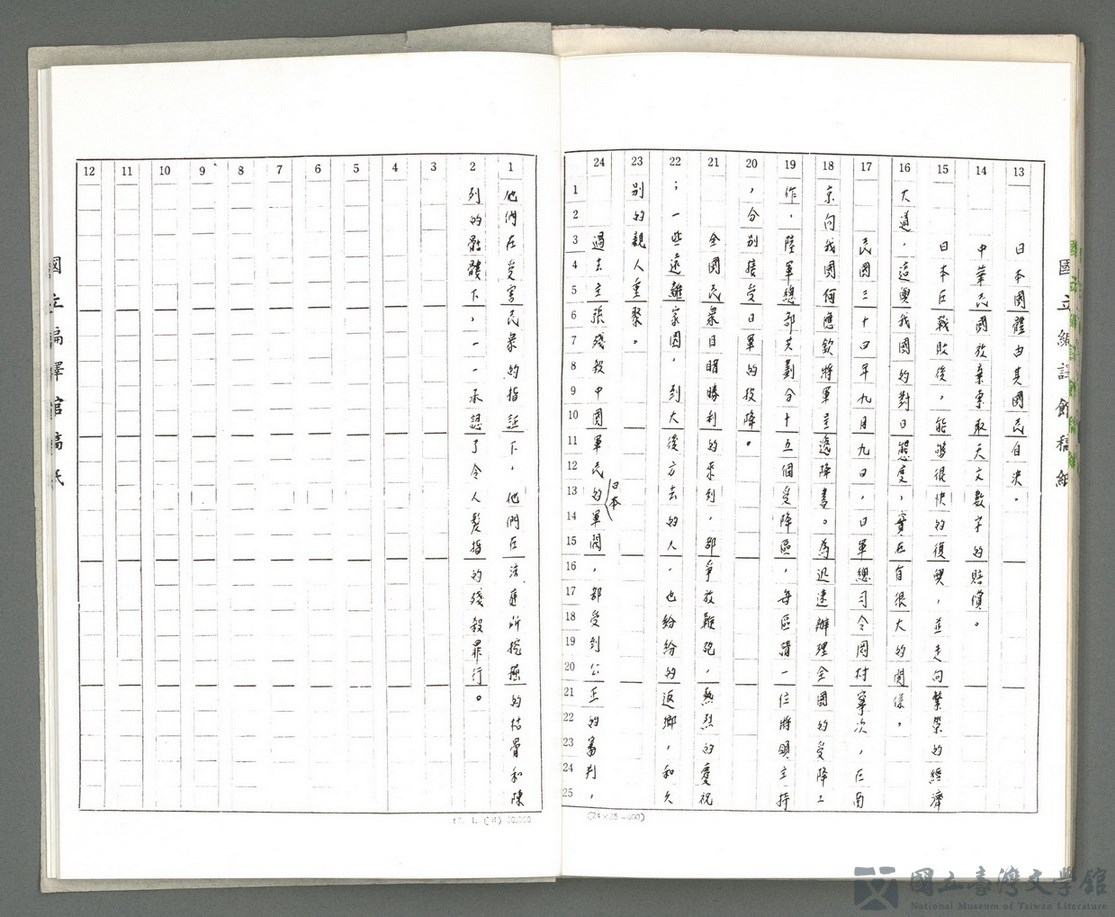 日本國體由其國民自決。
中華民國放棄爭取天文數字的賠償。
日本在戰敗後，能夠很快的復興，並走向繁榮的經濟
大道，這與我國的對日態度，實在有很大的關係。
民國三十四年九月九日，日軍總司令岡村寧次，在南
京向我國何應欽將軍呈遞降書。為迅速辦理全國的受降工
作，陸軍總部共劃分十五個受降區，每區請一位將領主持
，分別接受日軍的投降。
全國民衆目睹勝利的來到，都爭放鞭炮，熱烈的慶祝
；一些遠離家園，到大後方去的人，也紛紛的返鄉，和久
別的親人重聚。
過去主張殘殺中國軍民的日本軍閥，都受到公正的審判，
他們在受害民衆的指証下，他們在法庭所挖掘的枯骨和陳
列的骷髏下，一一承認了令人髮指的殘殺罪行。
13
14
15
16
17
18
19
20
21
22
23
24
1
2
3
4
5
6
7
8
9
10
11
12
1
2
3
4
5
6
7
8
9
10
11
12
13
14
15
16
17
18
19
20
21
22
23
24
25
國立編譯館稿紙
國立編譯館稿紙
(24×25=600)
國立臺灣文學館
National Museum of Taiwan Literature